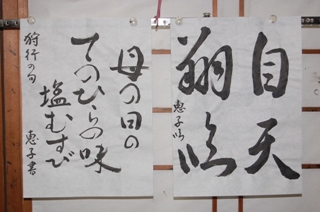 自天
翔臨
恵子
母の日の
てのひらの味
塩むすび
狩行の句 恵子書